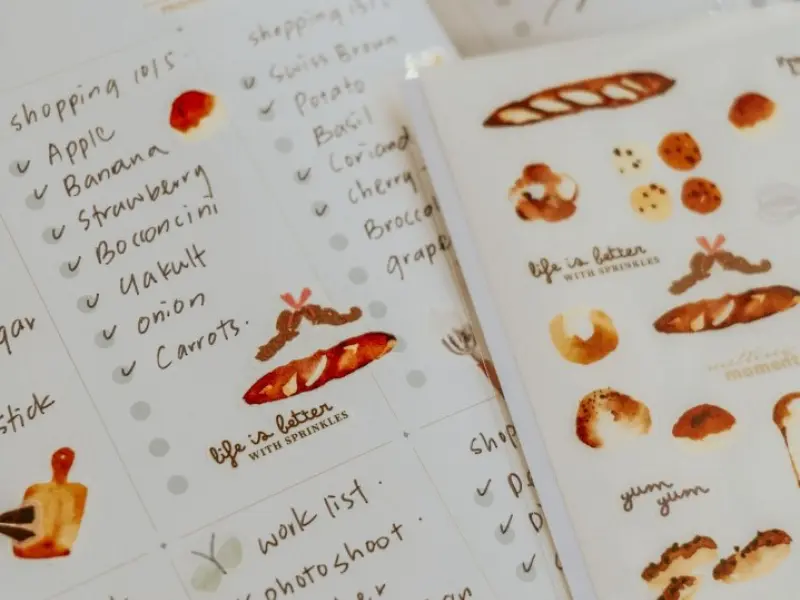 shopping lols.
Apple
Banana
Strawberry
Bocconcini
Yakult
onion
Carrots.
life is better
WITH SPRINKLES
shopping
Swiss Brown
Potato
Basil
Coriand
cherry
Brocco
grape
gar
stick
work list.
photoshoot.
shop
life is better
WITH SPRINKLES
moment
yum
yum